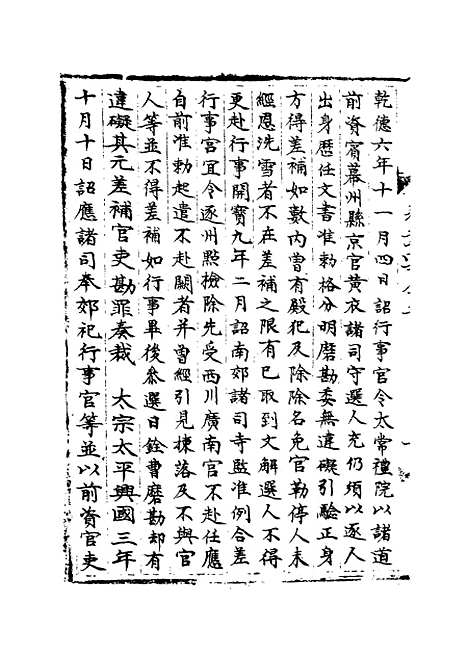 乾德六年十一月四日詔行事官令太常禮院以諸道
前資賓幕州縣京官黃衣諸司守選人充仍須以逐人
出身歷任文書准勅格分明磨勘委無違礙引驗正身
方得差補如數內曽有殿犯及除除名免官勒停人未
經恩洗雪者不在差補之限有已取到文解選人不得
更赴行事開寶九年二月詔南郊諸司寺監准例合差
行事官宜令逐州㸃檢除先受西川廣南官不赴任應
自前准勅起遣不赴闕者并曽經引見揀落及不與官
人等並不得差補如行事畢後叅選日銓曹磨勘却有
違礙其元差補官吏勘罪奏裁　太宗太平興國三年
十月十日詔應諸司奉郊祀行事官等並以前資官吏